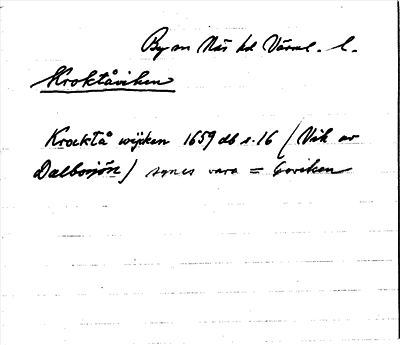 By en Näs hd Värml. l.
Kroktåviken
Krocktå wijken 1659 db s. 16 (Vik av
Dalbosjön) synes vara =